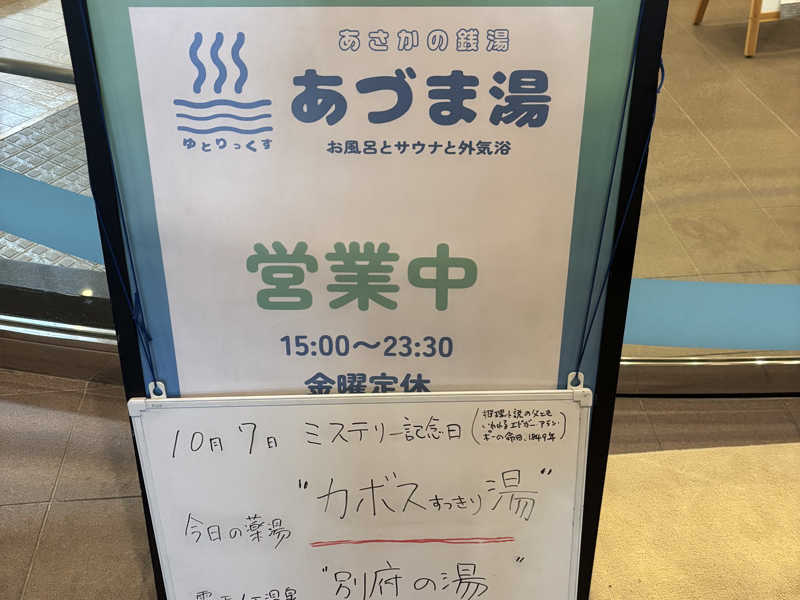 あさかの銭湯
あづま湯
ゆとりっくす
お風呂とサウナと外気浴
営業中
15:00〜23:30
金曜定休
10月7日 ミステリー記念日(推理小説の父とも
いわれるエドガー・アラン・
ポーの命日、1849年)
今日の薬湯 "カボスすっきり湯"
"別府の湯"